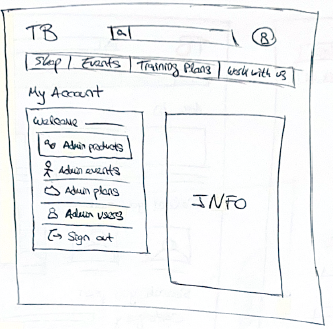 TB
Shop Events Training Plans Work with us
My Account
Welcome
Admin products
Admin events
Admin plans
Admin users
Sign out
INFO